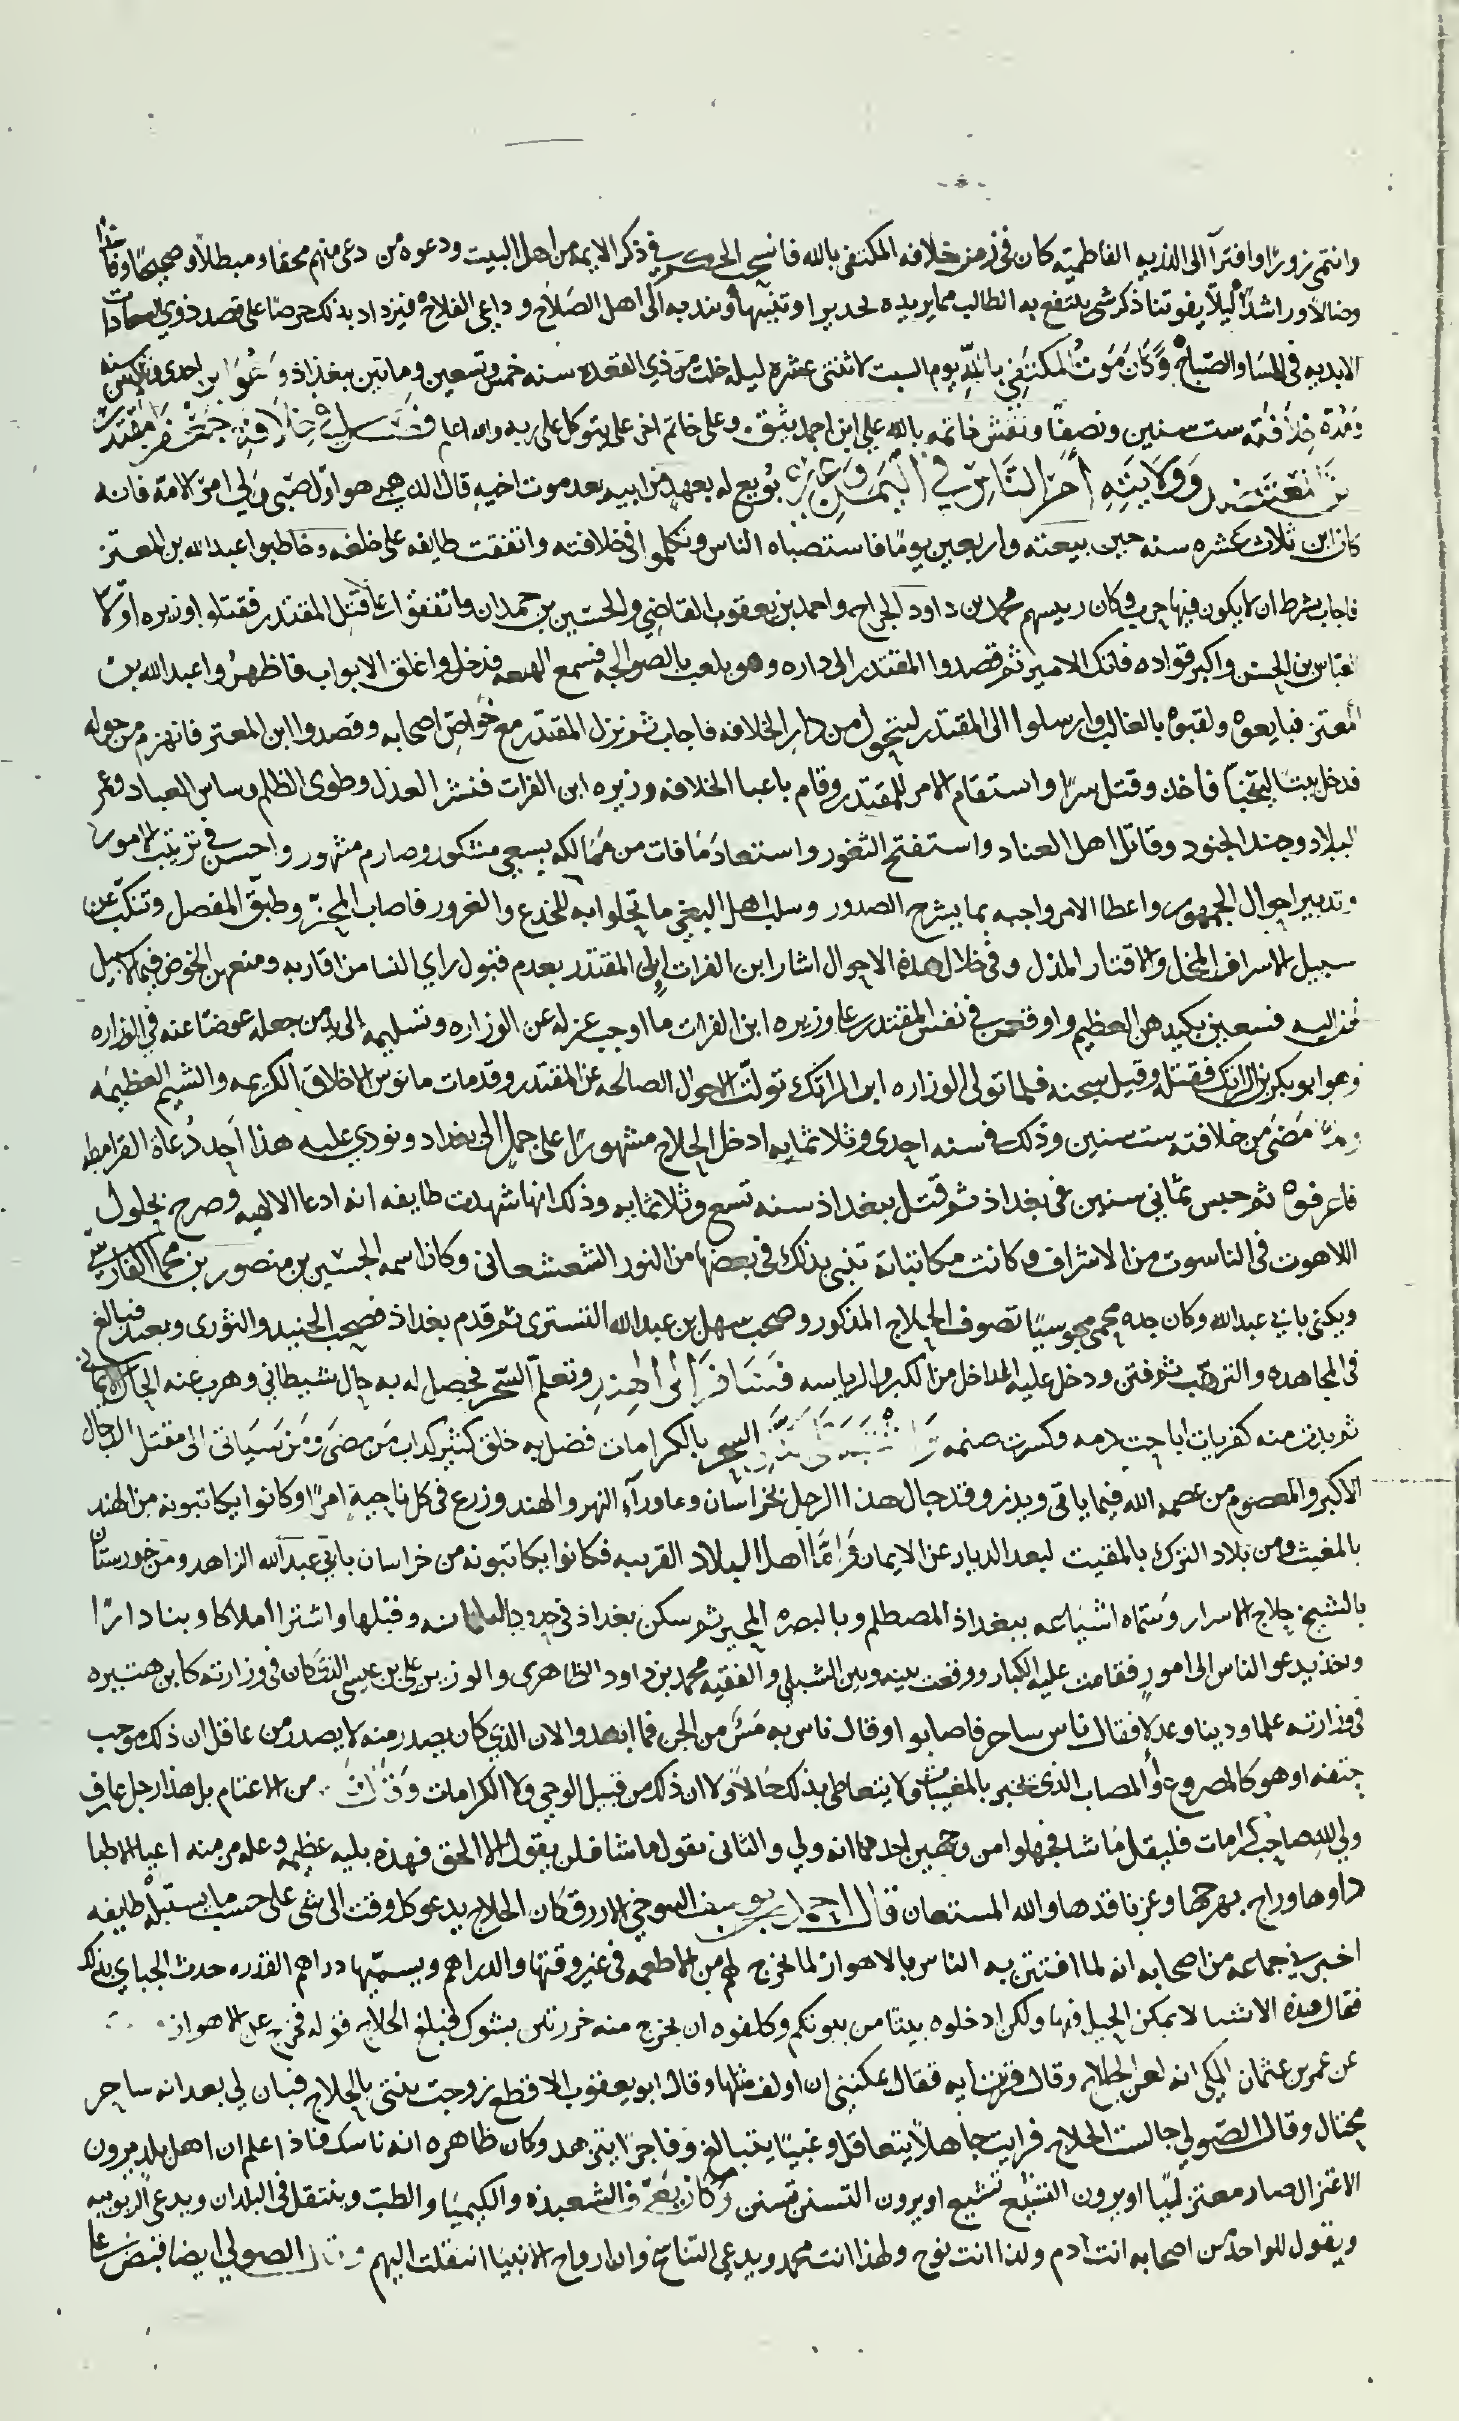 وانتمى زورًا وافترآ الى الذريه الفاطميه كان فى زمن خلافه المكتفى بالله فانسحب الحكم في ذكر الايمه من اهل البيت ودعوه من دعى منهم محقا ومبطلا وصحيحًا
وضالا وراشدًا ليلا يفوتنا ذكر شى ينتفع به الطالب مما يريده تحديرا وتنبيها ونندبه الى اهل الصلاح وداعى الفلاح فيزداد بذلك حرصًا على قصد ذوي السعادات
الابديه فى المسا والصباح وكان موت المكتفي بالله يوم السبت لاثنتى عشره ليله خلت من ذي القعده سنه خمس وتسعين وماتين ببغداذ وعمره ابن احدى وثلاثين سنه
ومدة خلافته ست سنين ونصفًا ونقش خاتمه بالله علي ابن احمد يثق وعلى خاتم اخر على يتوكل على ربه والله اعلم فصل في خلافة جعفر المقتدر
بن المعتضد وولايته أحر الناس في اليمن وغيره بويع له بعهد من ابيه بعد موت اخيه قال الذهبي هو اول صبى ولي امر الامة فانه
كان ابن ثلاث عشره سنه حين بيعته واربعين يومًا فاستصباه الناس وتكلموا فى خلافته واتفقت طايفه على خلعه وخاطبوا عبدالله بن المعتز
فاجاب بشرط ان لا يكون فيها حرب وكان رييسهم محمد بن داود الجراح واحمد بن يعقوب القاضي والحسين بن حمدان واتفقوا على قتل المقتدر فقتلوا وزيره اولا
العباس بن الحسن واكبر قواده فاتك الامير ثم قصدوا المقتدر الى داره وهو يلعب بالصوالجه فسمع الهيعه فدخل واغلق الابواب فاظهروا عبدالله بن
المعتز فبايعوه ولقبوه بالغالب وارسلوا الى المقتدر ليتحول من دار الخلافه فاجاب ثم نزل المقتدر مع خواص اصحابه وقصدوا ابن المعتز فانهزم من حوله
فدخل بيتًا ليتخبا فاخذ وقتل سرًا واستقام الامر للمقتدر وقام باعبا الخلافه وزيره ابن الفرات فنشر العدل وطوى الظلم وساس العباد وعمر
البلاد وجند الجنود وقاتل اهل العناد واستفتح الثغور واستعاد ما فات من ممالكه بسعي مشكور وصارم مشهور واحسن فى ترتيب الامور
وتدبير احوال الجمهور واعطا الامر واجبه بما يشرح الصدور وسلب اهل البغي ما تحلوا به للخدع والغرور فاصاب المحز وطبق المفصل وتنكب عن
سبيل الاسراف المخل والاقتار المذل وفي خلال هذه الاحوال اشار ابن الفرات الى المقتدر بعدم قبول راي النسا من اقاربه ومنعهن الخوض فيما لا سبيل
لهن اليه فسعين بكيدهن العظيم واوقعن في نفس المقتدر على وزيره ابن الفرات ما اوجب عزله عن الوزاره وتسليمه الى من جعله عوضًا عنه فى الوزاره
وهو ابو بكر بن الراتك فقتله وقيل سجنه فلما تولى الوزاره ابن الراتك تولت الاحوال الصالحه عن المقتدر وقد مات مانوس الاخلاق الكريمه والشيم العظيمه
ولما مضى من خلافته ست سنين وذلك فى سنه احدى وثلاثمايه ادخل الحلاج مشهورًا على جمل الى بغداد ونودي عليه هذا احد دعاة القرامطه
فاعرفوه ثم حبس ثماني سنين فى بغداذ ثم قتل ببغداذ سنه تسع وثلاثمايه وذلك انها شهدت طايفه انه ادعا الالهيه وصرح بحلول
اللاهوت فى الناسوت من الاشراف وكانت مكاتباته تنبي بذلك فى بعضها من النور الشعشعانى وكان اسمه الحسين بن منصور بن محمى الفارسي
ويكنى بابي عبدالله وكان جده محمى مجوسيًا تصوف الحلاج المذكور وصحب سهل بن عبدالله التسترى ثم قدم بغداذ فصحب الجنيد والثورى وبعد فبالغ
فى المجاهده والترهب ثم فتن ودخل عليه المداخل من الكبر والرياسه فسافر إلى الهند وتعلم السحر فحصل له به حال شيطاني وهرب عنه الحال الايمانى
ثم بدت منه كفريات اباحت دمه وكسرت صنمه السحر بالكرامات فضل به خلق كثير كداب من مضى ومن سياتى الى مقتل الدجال
الاكبر والمعصوم من عصمه الله فيما ياتى ويذر وقد جال هذا الرجل بخراسان وماوراء النهر والهند وزرع فى كل ناحيه امرًا وكانوا يكاتبونه من الهند
بالمغيث ومن بلاد الترك بالمقيت لبعد الديار عن الايمان واما اهل البلاد القريبه فكانوا يكاتبونه من خراسان بابي عبدالله الزاهد ومن خورستان
بالشيخ حلاج الاسرار وسماه اشياعه ببغداذ المصطلم وبالبصره المحير ثم سكن بغداذ فى حدود الثلثمائه وقبلها واشترا املاكا وبنا دارًا
واخذ يدعو الناس الى امورٍ فقامت عليه الكبار ووقعت بينه وبين الشبلي والفقيه محمد بن داود الظاهرى والوزير على بن عيسى الذي كان فى وزارته كابن هبيره
فى وزارته علما ودينا وعدلا فقال ناس ساحر فاصابوا وقال ناس به مس من الجن فما ابعدوا لان الذي كان يصدر منه لا يصدر من عاقل ان ذلك موجب
حتفه او هو كالمصروع او المصاب الذى يخبر بالمغيبات ولا يتعاطى بذلك حالا ولا ان ذلك من قبيل الوحي ولا الكرامات وقال من الاغتام بل هذا رجل عارف
ولي لله صاحب كرامات فليقل ما شا فجهلوا من وجهين احدهما انه ولي والثانى يقول ما شا فلن يقول الا الحق فهذه بليه عظيمه وعله مزمنه اعيا الاطبا
داوها وراج بهرجها وعز ناقدها والله المستعان قال احمد بن يوسف التنوخي الازرق كان الحلاج يدعو كل وقت الى شى على حسب ما يستبله طايفه
اخبرني جماعه من اصحابه انه لما افتتن به الناس بالاهواز لما يخرج لهم من الاطعمه فى غير وقتها والدراهم ويسميها دراهم القدره حدث الجباي بذلك
فقال هذه الاشيا لا يمكن الحيل فيها ولكن ادخلوه بيتا من بيوتكم وكلفوه ان يخرج منه خرزتين بشوك فبلغ الحلاج قوله فخرج عن الاهواز
عن عمر بن عثمان المكي انه لعن الحلاج وقال قرات ايه فقال يمكنني ان اولف مثلها وقال ابو يعقوب الاقطع زوجت بنتى بالحلاج فبان لي بعد انه ساحر
محتال وقال الصولي جالست الحلاج فرايت جاهلا يتعاقل وغبيًا يتبالغ وفاجرًا يتزهد وكان ظاهره انه ناسك فاذا علم ان اهل بلد يرون
الاعتزال صار معتزليًا او يرون التشيع تشيع او يرون التسنن تسنن وكان يعرف الشعبذه والكيميا والطب وينتقل فى البلدان ويدعى الربوبيه
ويقول للواحد من اصحابه انت آدم ولذا انت نوح ولهذا انت محمد ويدعي التناسخ وان ارواح الانبيا انتقلت اليهم وقال الصولي ايضا قبض على